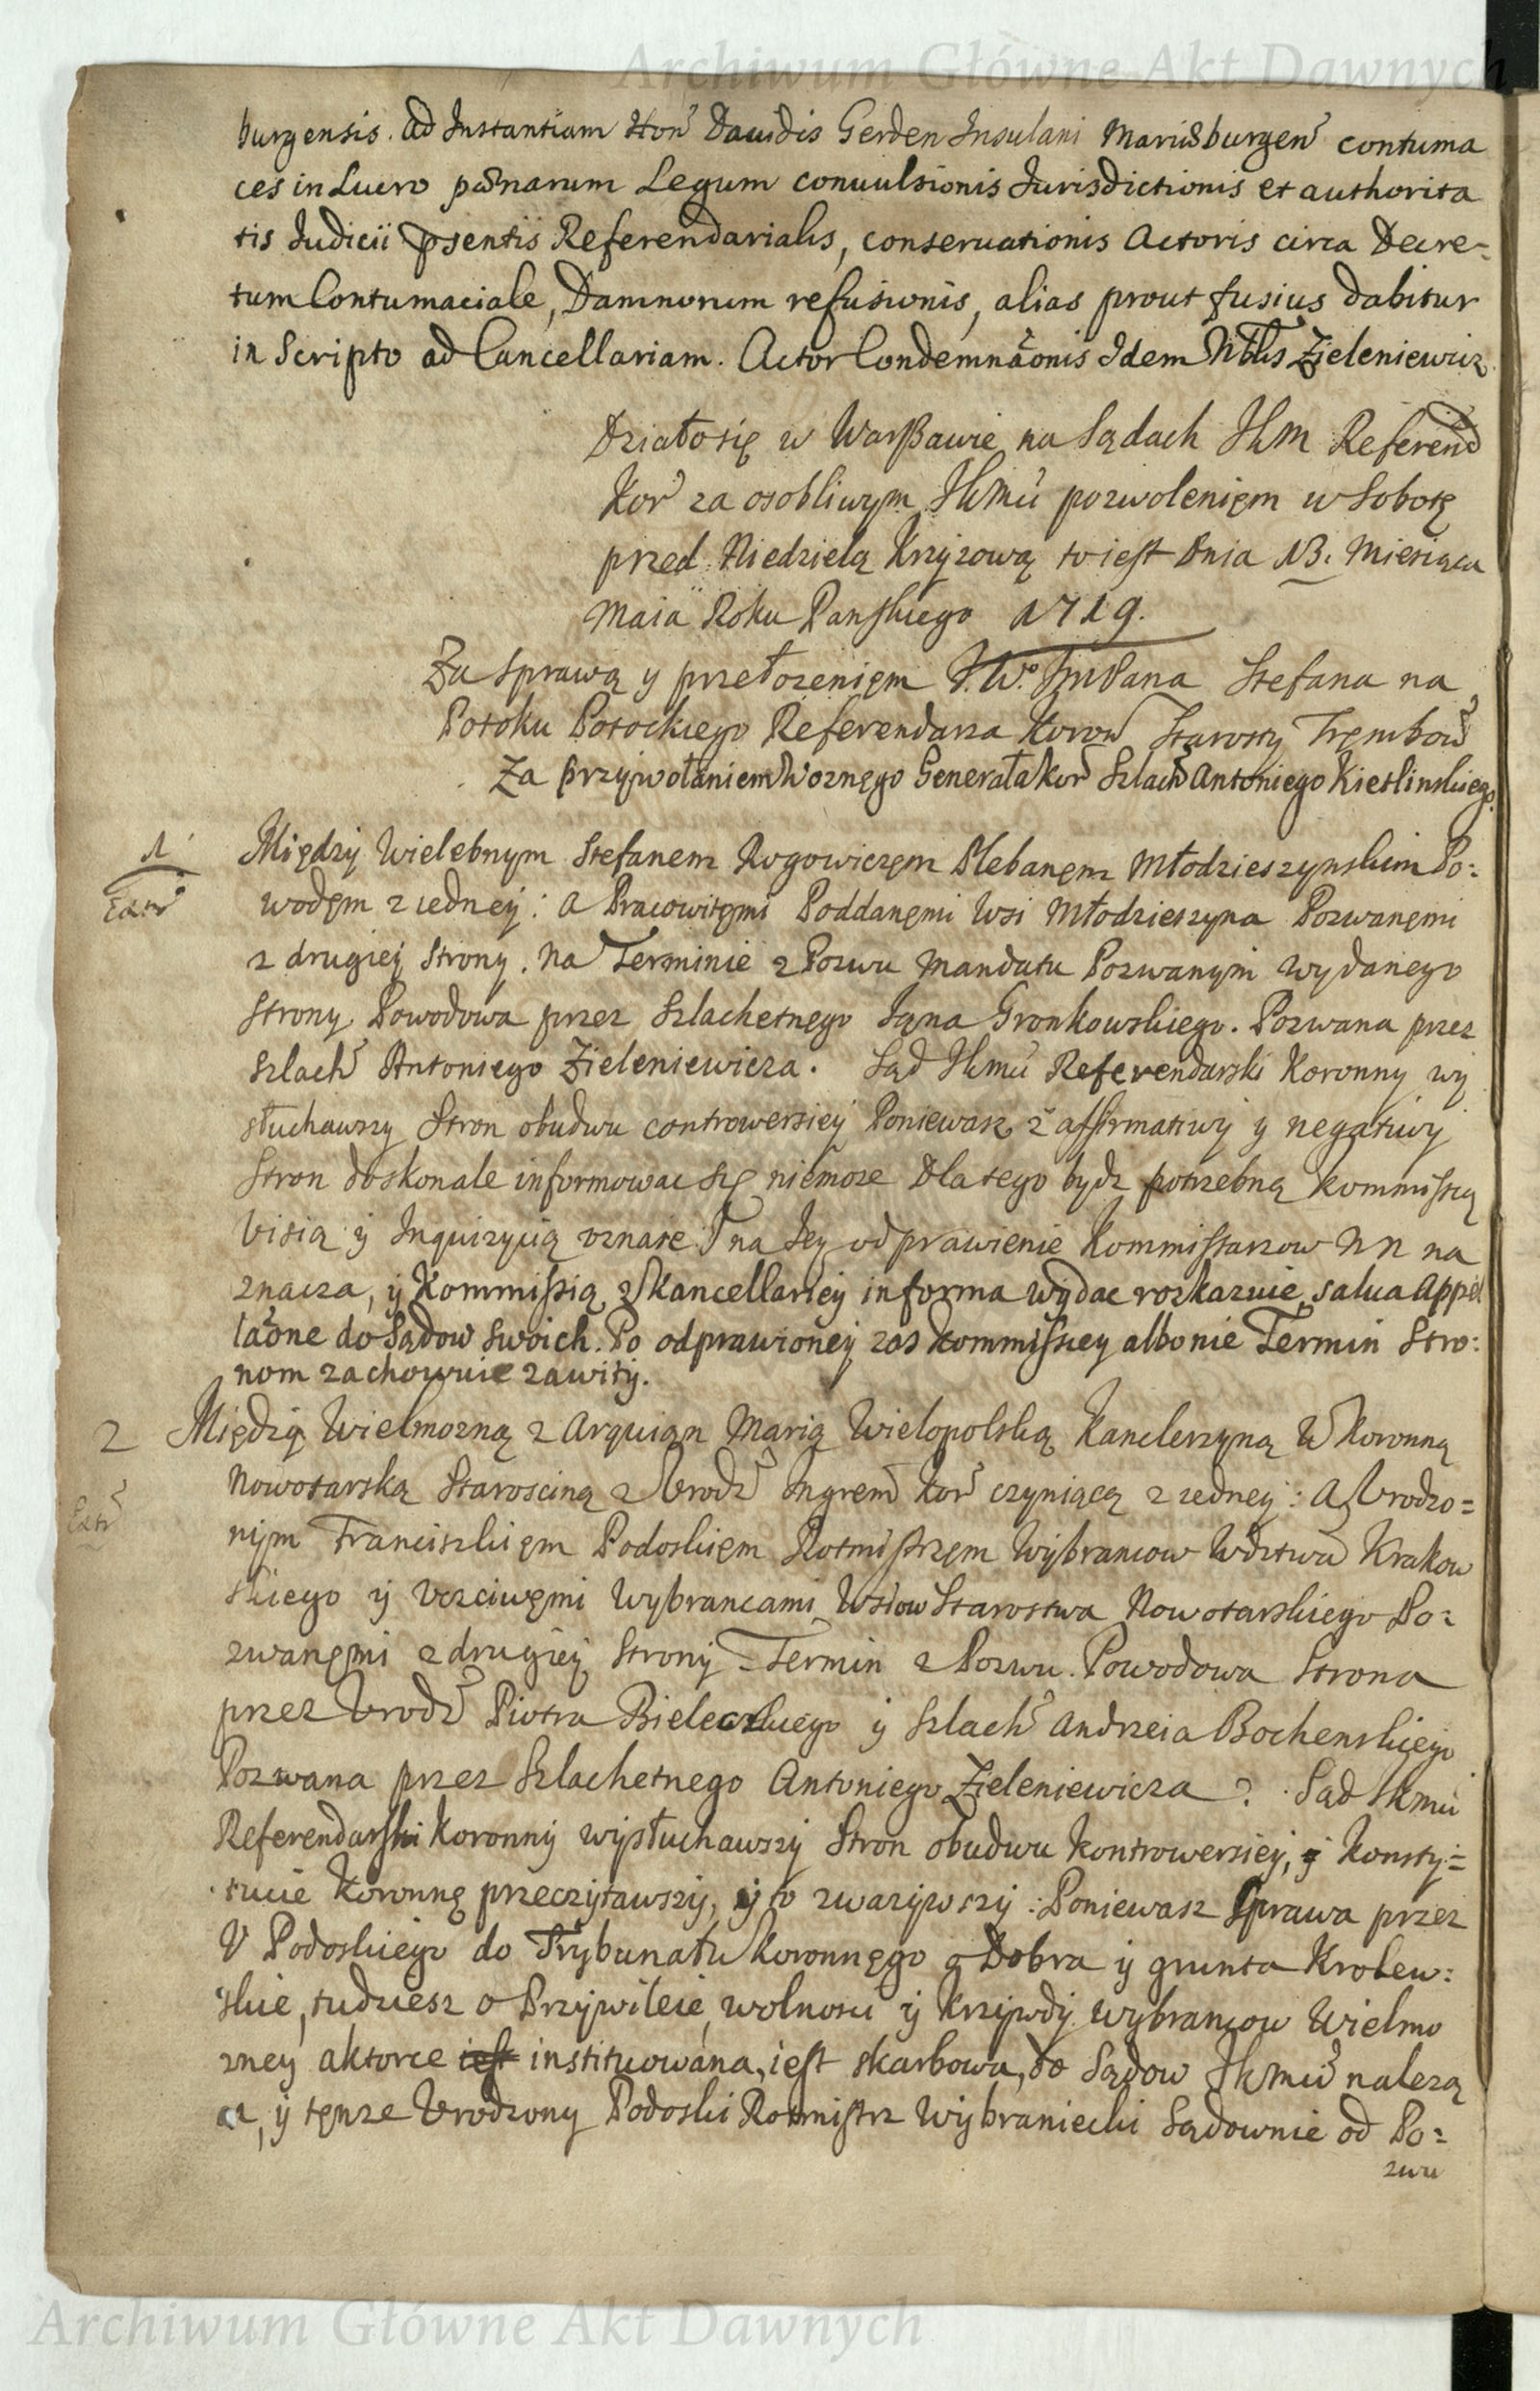 Archiwum Główne Akt Dawnych
burgensis. ad Instantiam Hon Dauidis Gerden Insulani Mariæburgen contuma
ces in Lucro pœnarum Legum conuulsionis Jurisdictionis et authorita
tis Judicii psentis Referendarialis, conseruationis Actoris circa Decre=
tum Contumaciale, Damnorum refusionis, alias prout fusius dabitur
in Scripto ad Cancellariam. Actor Condemnãonis Idem Nblis Zieleniewicz
Działo się w Warßawie na Sądach JKM Referend
Kor za osobliwym JKMci pozwolenięm w Sobotę
przed Niedzielą Krzyzową to iest Dnia 13. Miesiąca
Maia Roku Panskiego 1719.
Za sprawą y przełozenięm J.W.o Jmć Pana Stefana na
Potoku Potockiego Referendarza Koron Starosty Trembow
Za przywołaniem Woznęgo Generała Kor Szlach Antoniego Kietlinskiego
1
Extr
Międzÿ Wielebnym Stefanem Rogowiczęm Plebanęm Młodzieszynskim Po:
wodęm z iedneÿ: a Pracowitęmi Poddanęmi Wsi Młodzieszyna Pozwanęmi
z drugieÿ Strony. Na Terminie z Pozwu Mandatu Pozwanym wydanego
Strony Powodowa przez Szlachetnęgo Jana Gronkowskiego. Pozwana przez
Szlach Antoniego Zieleniewicza. Sąd JKmci Referendarski Koronny wÿ
słuchawszy Stron obudwu controwersieÿ Poniewasz z affirmatiwÿ y negatiwÿ
Stron doskonale informowac się niemoze Dla tego bydz potrzebną kommissią
Visią ÿ Inquizycią vznaie J na Jeÿ odprawienie Kommissarzow NN na
znacza, ÿ Kommissią z Kancellarieÿ in forma wÿdac roskazuie, salua Appel
lãone do Sądow swoich. Po odprawioneÿ zas Kommissieÿ albo nie Termin Stro:
nom zachowuie zawitÿ.
2
Extr
Międzÿ Wielmozną z Arquian Marią Wielopolską Kanclerzyną W Koronną
Nowotarską Starosciną z Vrodz Ingrem Kor czyniącą z iedneÿ: a Vrodzo=
nÿm Franciszkięm Podoskięm Rotmistrzęm Wybrancow Wdztwa Krakow
skiego ÿ Vczciwęmi Wybrancami Wsiow Starostwa Nowotarskiego Po:
zwanęmi z drugieÿ Stronÿ Termin z Pozwu. Powodowa Strona
przez Vrodz Piotra Bieleckiego ÿ Szlach Andrzeia Bochenskiego
Pozwana przez Szlachetnego Antoniego Zieleniewicza. Sąd JKmci
Referendarski Koronnÿ wysłuchawszÿ Stron obudwu kontrowersieÿ, ÿ Konsty=
tucie Koronnę przeczÿtawszÿ, ÿ to zwazÿwszÿ: Poniewasz Sprawa przez
V Podoskiego do Trybunału Koronnęgo o Dobra ÿ grunta Krolew:
skie, tudziesz o Przÿwileie, wolnosci ÿ krzÿwdÿ wybrancow Wielmo
zneÿ aktorce iest instituowana, iest skarbowa, do Sądow JKmci nalezą
ca, ÿ tęnze Vrodzony Podoski Rotmistrz Wÿbraniecki Sądownie od Po:
zwu
Archiwum Główne Akt Dawnych